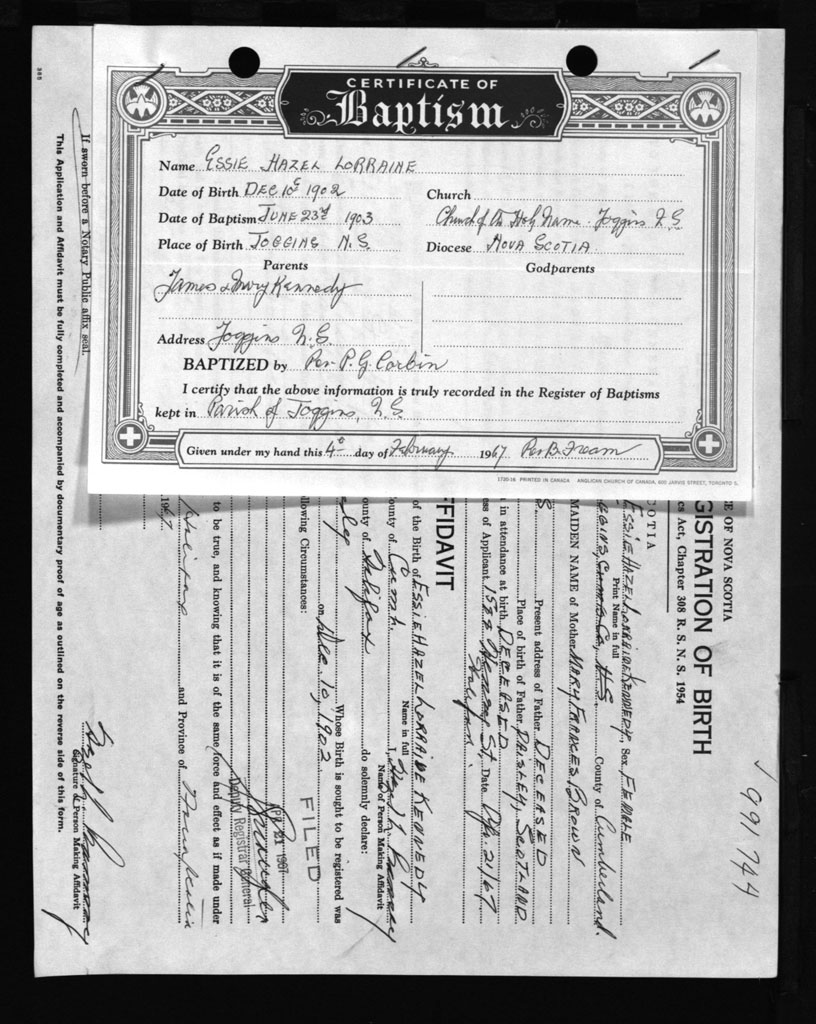 CERTIFICATE OF
Baptism
Name ESSIE HAZEL LORRAINE
Date of Birth DEC 10 1902
Church
Date of Baptism JUNE 23rd 1903
Church of the Holy Name. Joggins N.S.
Place of Birth JOGGINS N.S.
Diocese NOVA SCOTIA
Parents
Godparents
James & Mary Kennedy
Address Joggins N.S.
BAPTIZED by Rev. P.G. Corbin
I certify that the above information is truly recorded in the Register of Baptisms
kept in Parish of Joggins, N.S.
Given under my hand this 4th day of February 1967 Rev B. Fream
1730-16 PRINTED IN CANADA ANGLICAN CHURCH OF CANADA, 600 JARVIS STREET, TORONTO 5,
991744
E OF NOVA SCOTIA
GISTRATION OF BIRTH
cs Act, Chapter 308 R. S. N. S. 1954
COTIA
ESSIE HAZEL LORRAINE KENNEDY, Sex FEMALE
Print Name in full
GGINS, CUMB. CO., N.S. County of Cumberland.
MAIDEN NAME of Mother MARY FRANCES BROWN
S. Present address of Father DECEASED
Place of birth of Father PAISLEY, SCOTLAND
in attendance at birth DECEASED
ess of Applicant 1588 St. Date Ap. 21/67
Halifax.
FFIDAVIT
of the Birth of ESSIE HAZEL LORRAINE KENNEDY
Name in full
ounty of Cumb. I,
Name of Person Making Affidavit
ounty of Halifax do solemnly declare:
Whose Birth is sought to be registered was
on Dec. 10, 1902
llowing Circumstances:
FILED
APR 21 1967
Deputy Registrar General
to be true, and knowing that it is of the same force and effect as if made under
Halifax and Province of Nova Scotia
1967.
Signature of Person Making Affidavit
If sworn before a Notary Public affix seal.
This Application and Affidavit must be fully completed and accompanied by documentary proof of age as outlined on the reverse side of this form.